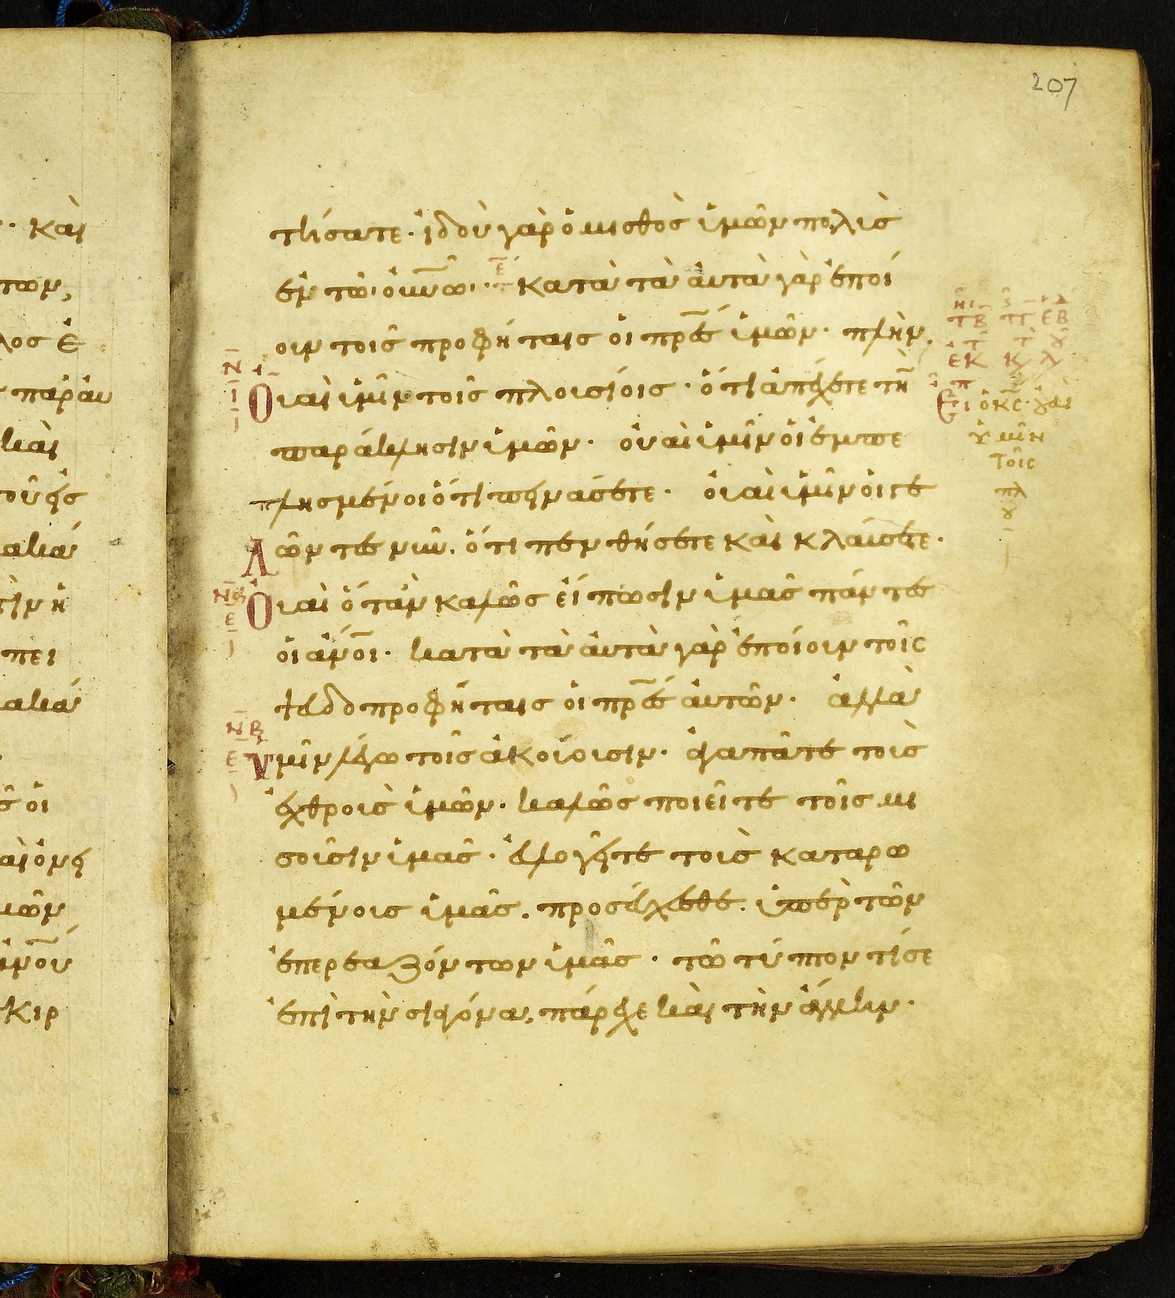 207
τκήσατε· ἰδοὺ γὰρ ὁ μισθὸς ὑμῶν πολὺς
ἐν τῶ οὐνῶ· κατὰ τὰ ἀυτὰ γὰρ ἐποί
ουν τοῖς προφήταις οἱ πρες ὑμῶν· πλὴν
Οὐαὶ ὑμῖν τοῖς πλουσίοις· ὅτι ἀπέχετε τὴν
παράκλησιν ὑμῶν· οὐαὶ ὑμῖν οἱ ἐμπε
πλησμένοι ὅτι πεινάσετε· οὐαὶ ὑμῖν οἱ γε
λῶντες νῦν. ὅτι πενθήσετε καὶ κλαύσετε·
Οὐαὶ ὅταν καλῶς εἴπωσιν ὑμᾶς πάντες
οἱ ἀνοι· κατὰ τὰ ἀυτὰ γὰρ ἐποίουν τοῖς
ψευδοπροφήταις οἱ πρες ἀυτῶν· ἀλλὰ
Ὑμῖν λέγω τοῖς ἀκούουσιν· ἀγαπᾶτε τοὺς
ἐχθροὺς ὑμῶν· καλῶς ποιεῖτε τοῖς μι
σοῦσιν ὑμᾶς· ἐυλογεῖτε τοὺς καταρω
μένους ὑμᾶς. προσέυχεσθε. ὑπὲρ τῶν
ἐπερεαζόντων ὑμᾶς· τῶ τύπτοντί σε
ἐπὶ τὴν σιαγόνα, πάρεχε καὶ τὴν ἄλλην·
Εἶπ ὁ κς· οὐαὶ
ὑμῖν
τοῖς
πλ